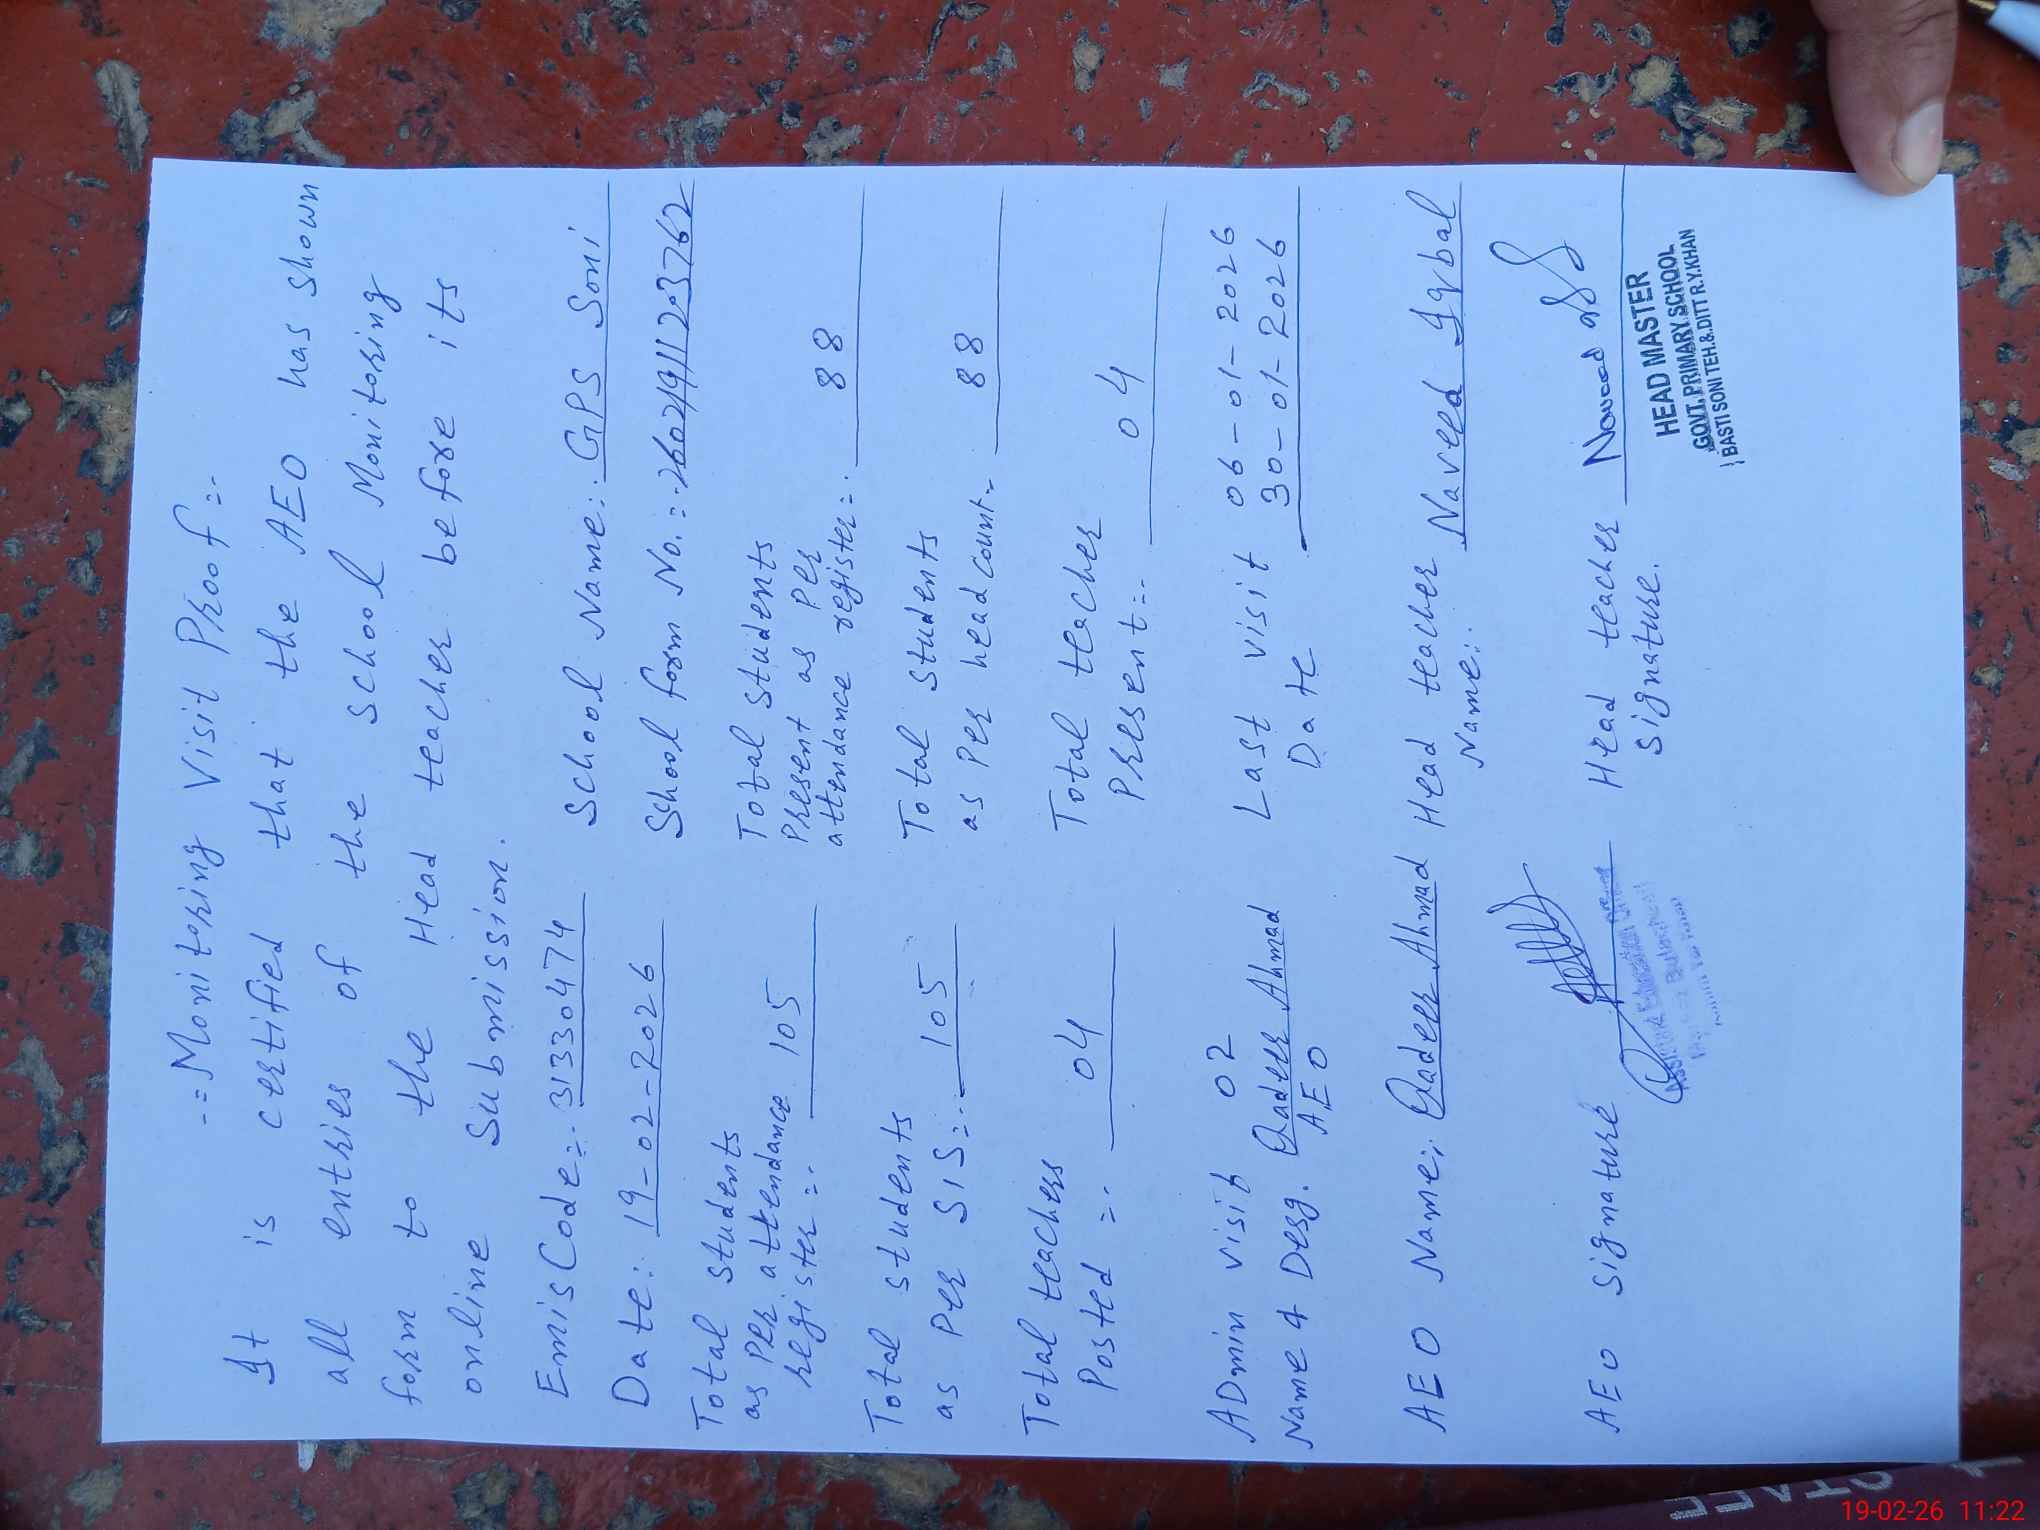 -:= Monitoring Visit Proof :-
It is certified that the AEO has shown
all entries of the school Monitoring
form to the Head teacher before its
online Submission.
Emis Code:- 31330474 School Name:- GPS Soni
Date: 19-02-2026 School form No.:- 26021911203762
Total Students as per attendance register:- 105 Total Students Present as per attendance register:- 88
Total students as per SIS:- 105 Total students as per headcount:- 88
Total teachers Posted:- 04 Total teacher Present:- 04
ADmin visit 02 Last visit Date 06-01-2026
30-01-2026
Name & Desg. Qadeer Ahmad
AEO
AEO Name: Qadeer Ahmad Head teacher Name: Naveed Iqbal
AEO Signature Head teacher signature. Naveed
HEAD MASTER
GOVT. PRIMARY SCHOOL
BASTI SONI TEH.& DITT R.Y.KHAN
19-02-26 11:22